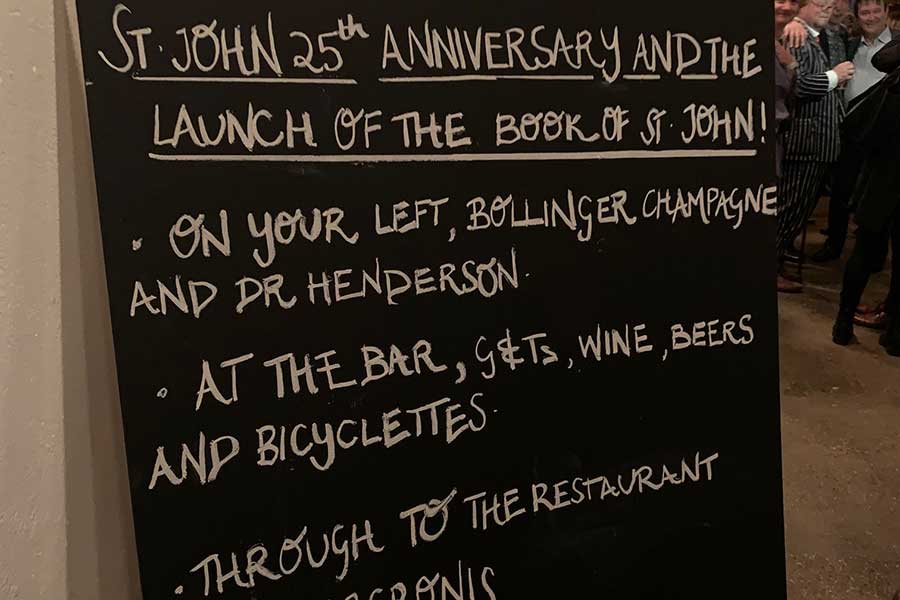 ST. JOHN 25th ANNIVERSARY AND THE
LAUNCH OF THE BOOK OF ST. JOHN!
• ON YOUR LEFT, BOLLINGER CHAMPAGNE
AND DR HENDERSON.
• AT THE BAR, G&Ts, WINE, BEERS
AND BICYCLETTES.
• THROUGH TO THE RESTAURANT